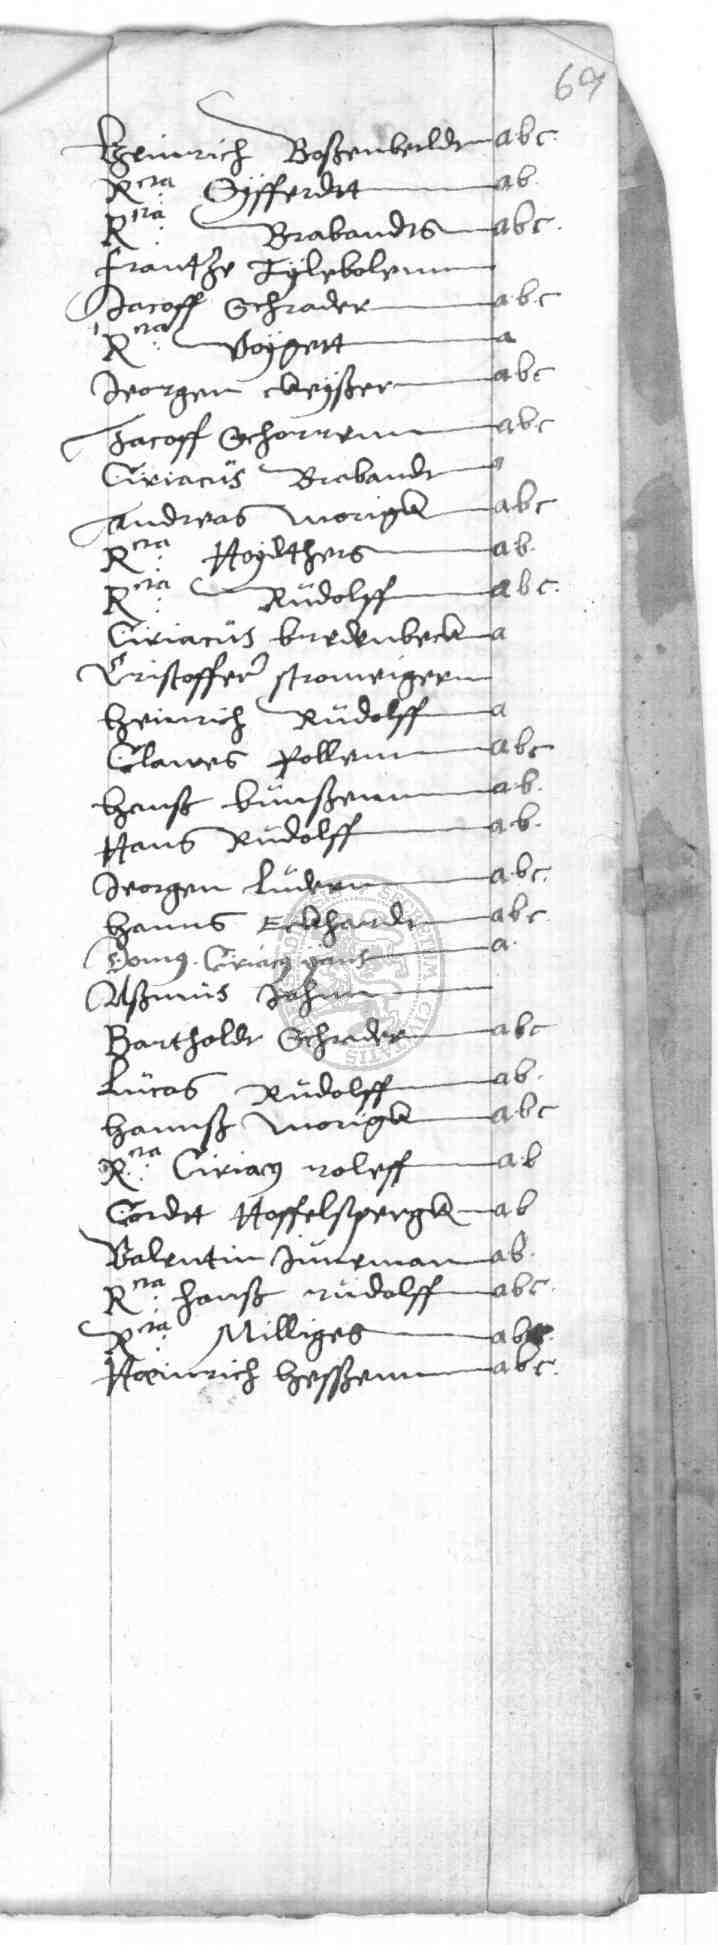 69
Heinrich Boßenbeildt abc.
R cta Syfferdtt ab.
R cta Brabandts abc.
Frantze Tylebolenn
Jacoff Schrader abc
R cta Voygett a
Jeorgen Keyßer abc
Jacoff Schorrenn abc
Ciriacüs Brabandt
Andreas Morigk abc
R cta Hoylthers ab.
R cta Rüdolff abc.
Ciriacüs bredenbeck a
Cristoffer stromeigern
Heinrich Rüdolff a
Clawes Pollenn abc
Hanß bünßenn ab.
Hans Rüdolff ab.
Jeorgen lüdern abc.
Hanns Eckhardt abc.
Domus Ciriacus a.
Aßmüs Jahnn
Bartholdt Schrader abc
Lücas Rüdolff ab.
Hannß Morigk abc
R cta Ciriacus roleff ab
Cordt Hoffelspergk ab
Valentin Jüneman ab.
R cta hanß rüdolff abc.
R cta Milliges ab
Heinrich Heßßenn abc.